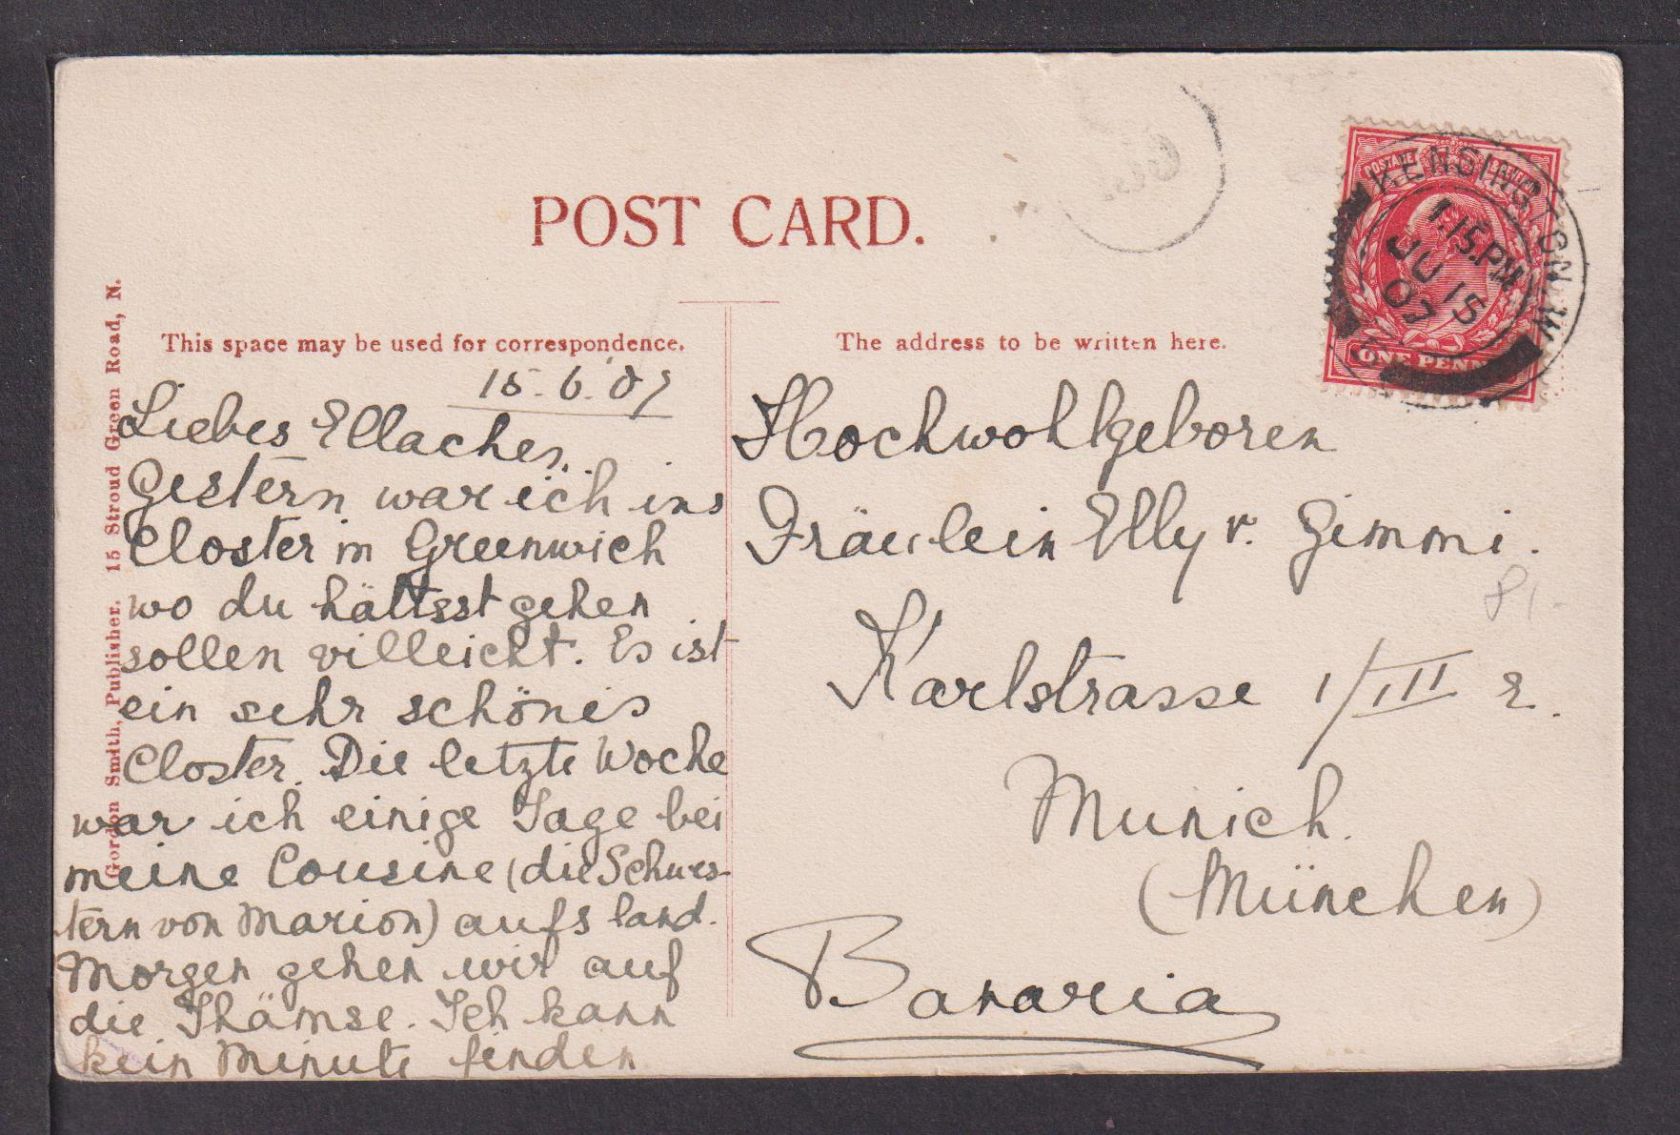 POST CARD.
This space may be used for correspondence.
The address to be written here.
Gordon Smith, Publisher. 15 Stroud Green Road, N.
KENSINGTON. W.
1.15.PM
JU 15
07
POSTAGE
ONE PENNY
15.6.07
Liebes Ellachen,
Gestern war ich ins
Closter in Greenwich
wo du hältsst gehen
sollen villeicht. Es ist
ein sehr schönes
Closter. Die letzte Woche
war ich einige Tage bei
meine Cousine (die Schwes-
tern von Marion) aufs land.
Morgen gehen wir auf
die Thämse. Ich kann
kein Minute finden
Hochwohlgeboren
Fräulein Elly v. Gimmi.
Karlstrasse 1/III r.
Munich.
(München)
Bavaria